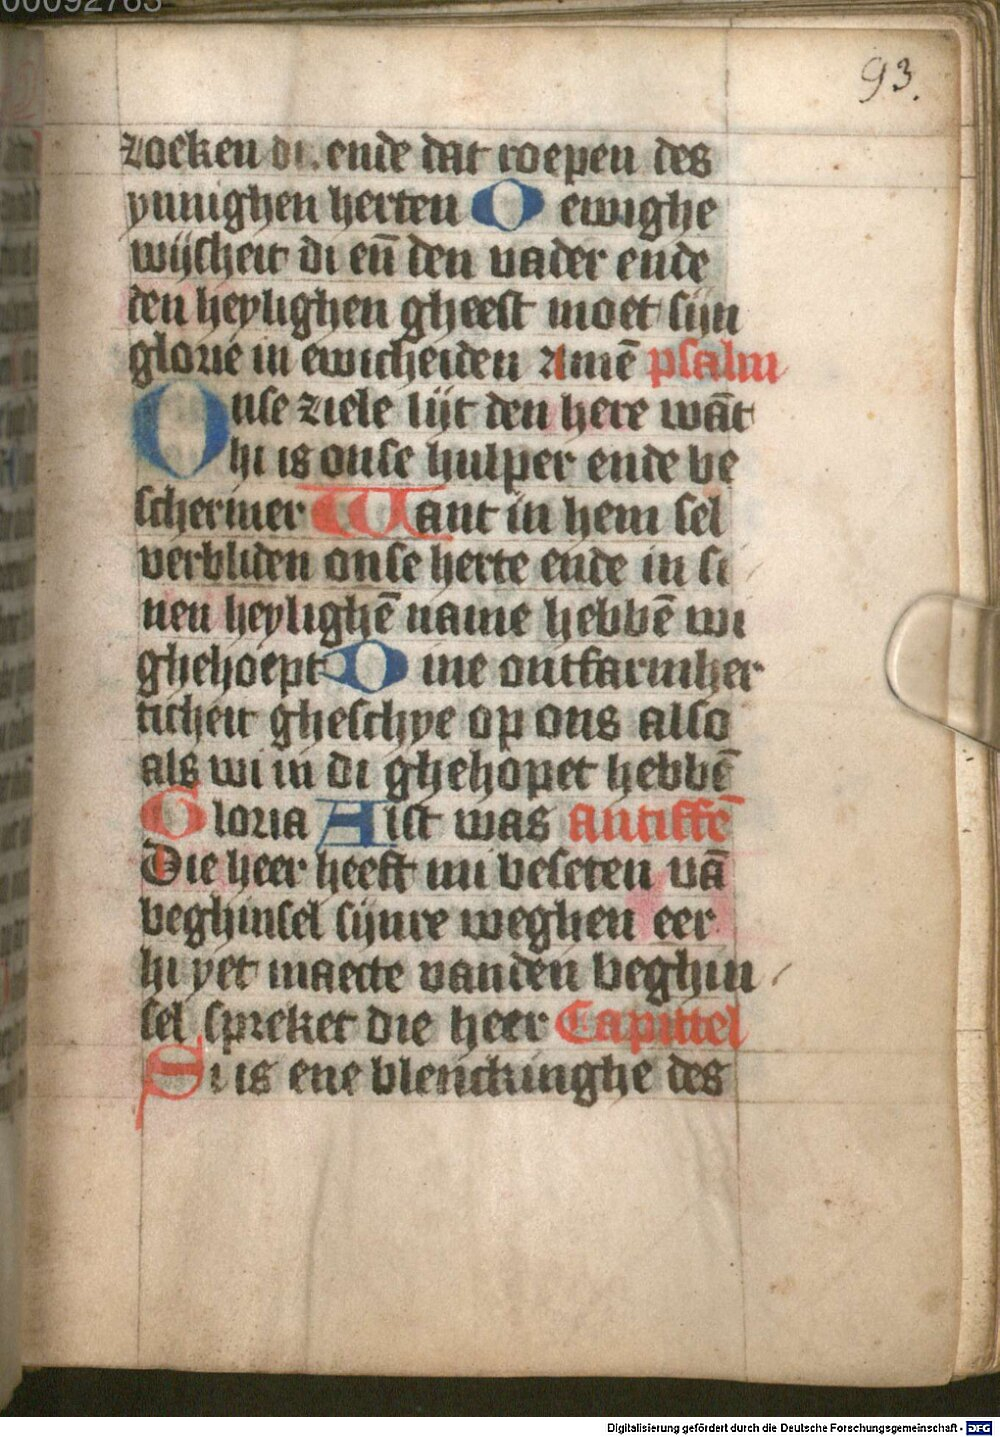 00092763
93.
zoeken di. ende dat roepen des
ynnighen herten O ewighe
wijsheit di en̄ den vader ende
den heylighen gheest moet sijn
glorie in ewicheiden Amē psalm
Onse ziele lijt den here wāt
hi is onse hulper ende be
schermer Want in hem sel
verbliden onse herte ende in si
nen heylighē name hebbē wi
ghehoept Dine ontfarmher
ticheit gheschye op ons also
als wi in di ghehopet hebbē
Gloria Alst was antiffē
Die heer heeft mi beseten vā
beghinsel sijnre weghen eer
hi yet maecte vanden beghin
sel spreket die heer Capittel
Si is ene blenckinghe des
Digitalisierung gefördert durch die Deutsche Forschungsgemeinschaft - DFG